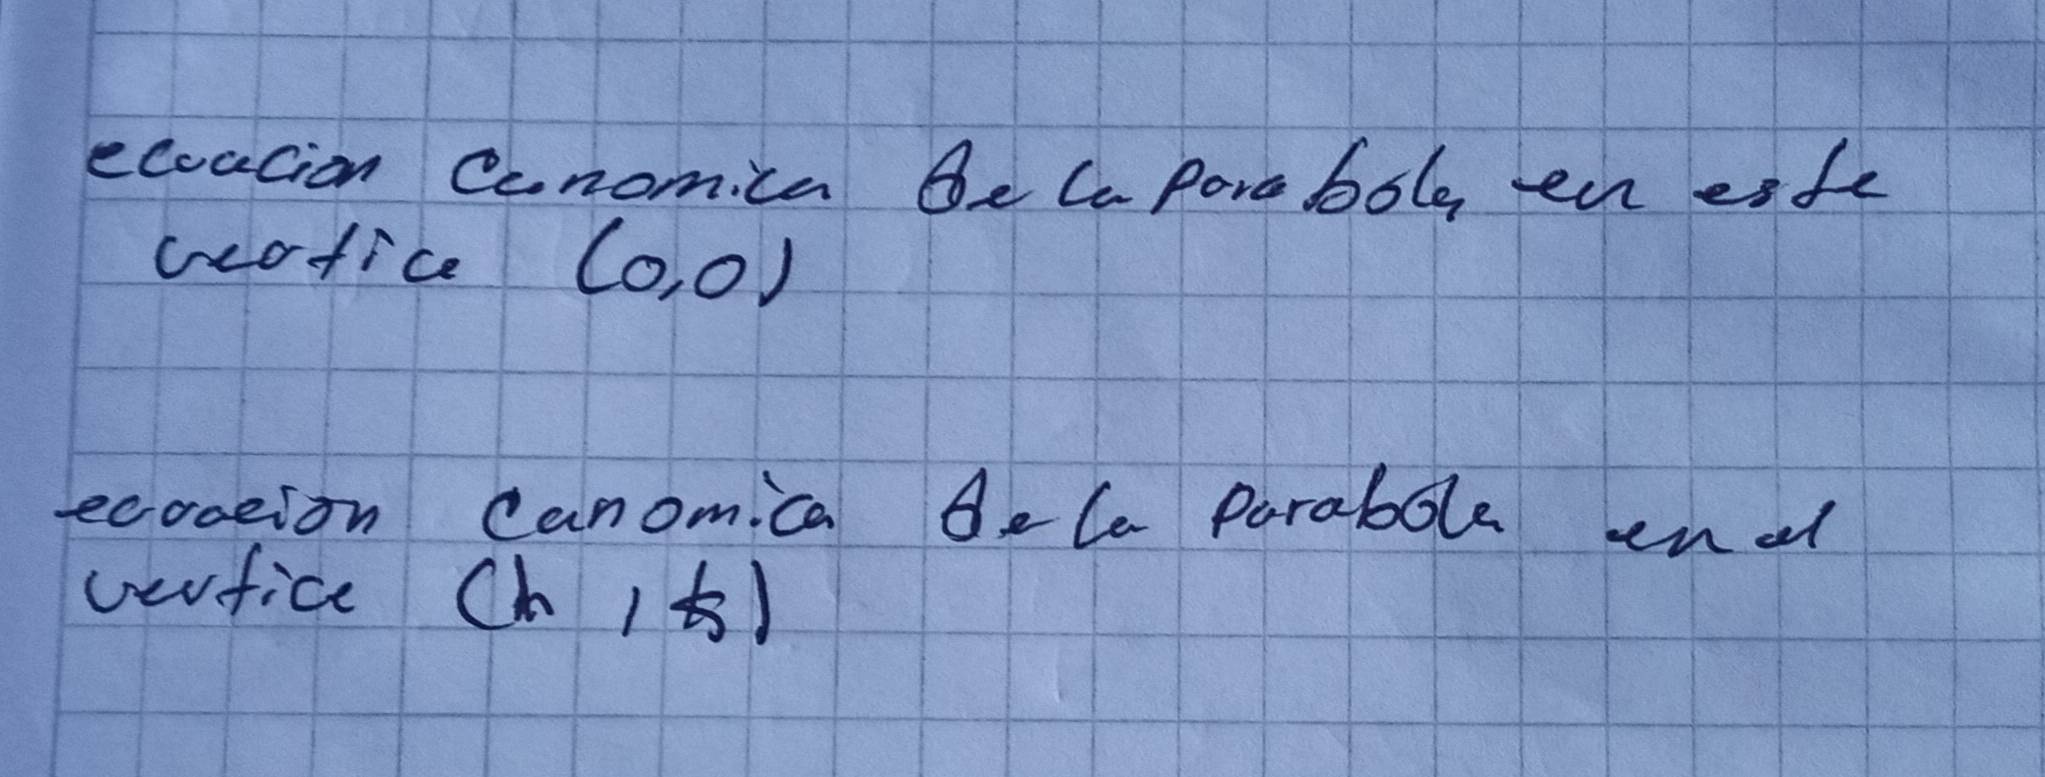 ecuacion canomica de la parabola en este
vertice (0,0)
ecuacion canomica de la parabola en el
vertice (h, k)